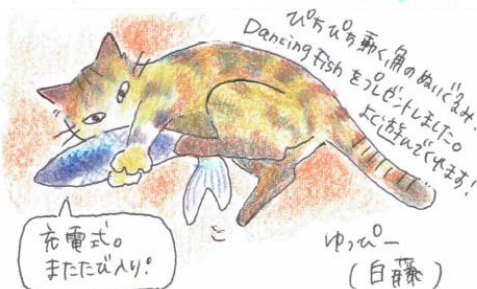 ぴちぴち動く魚のぬいぐるみ、
Dancing Fish をプレゼントしました。
よく遊んでくれます!
充電式。
またたび入り!
ゆっぴー
(白藤)